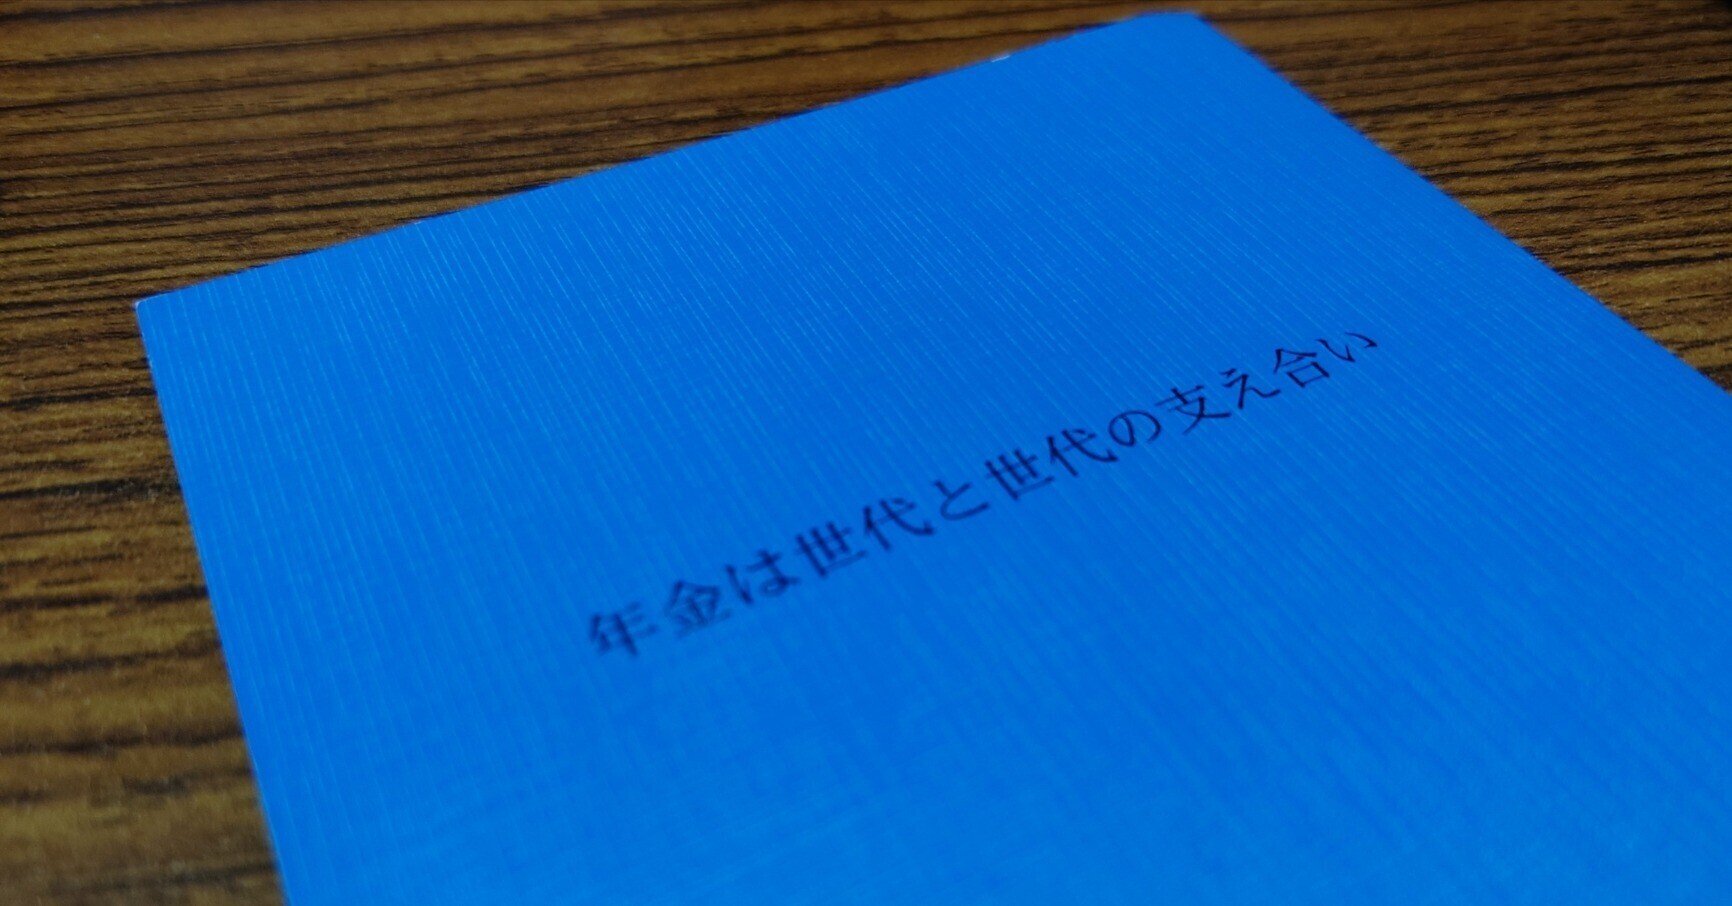 年金は世代と世代の支え合い